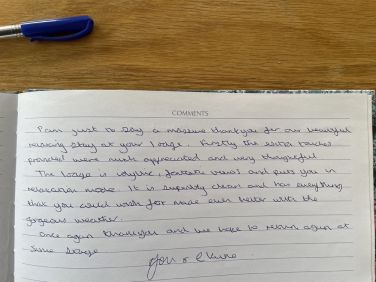 COMMENTS
I am just to say a massive thankyou for our beautiful
relaxing stay at your lodge. Firstly the extra touches
provided were much appreciated and very thoughtful
The lodge is idyllic, fantastic views and puts you in
relaxation mode. It is superbly clean and has everything
that you could wish for made even better with the
gorgeous weather.
Once again thankyou and we hope to return again at
some stage